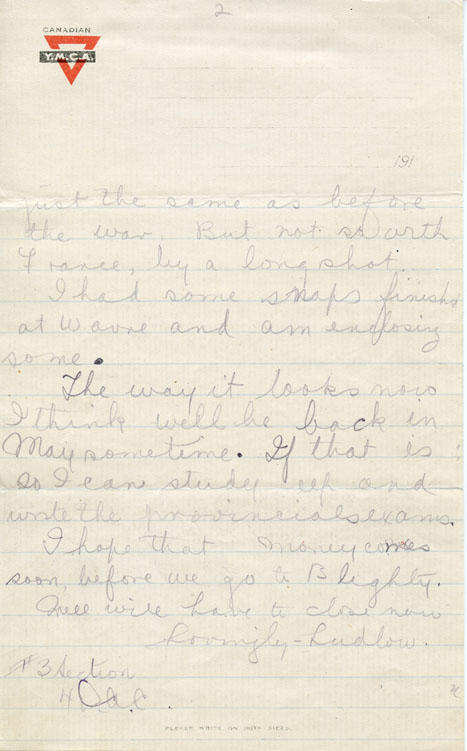 2
CANADIAN
Y.M.C.A.
191
just the same as before
the war. But not so
France, by a long shot.
I had some snaps finished
at Wavre and am enclosing
some.
The way it looks now
I think we'll be back in
May sometime. If that is
so I can study up and
write the provincials exams.
I hope that money comes
soon, before we go to Blighty.
will have to close now
Lovingly - Ludlow.
#3 Section
4
PLEASE WRITE ON BOTH SIDES.